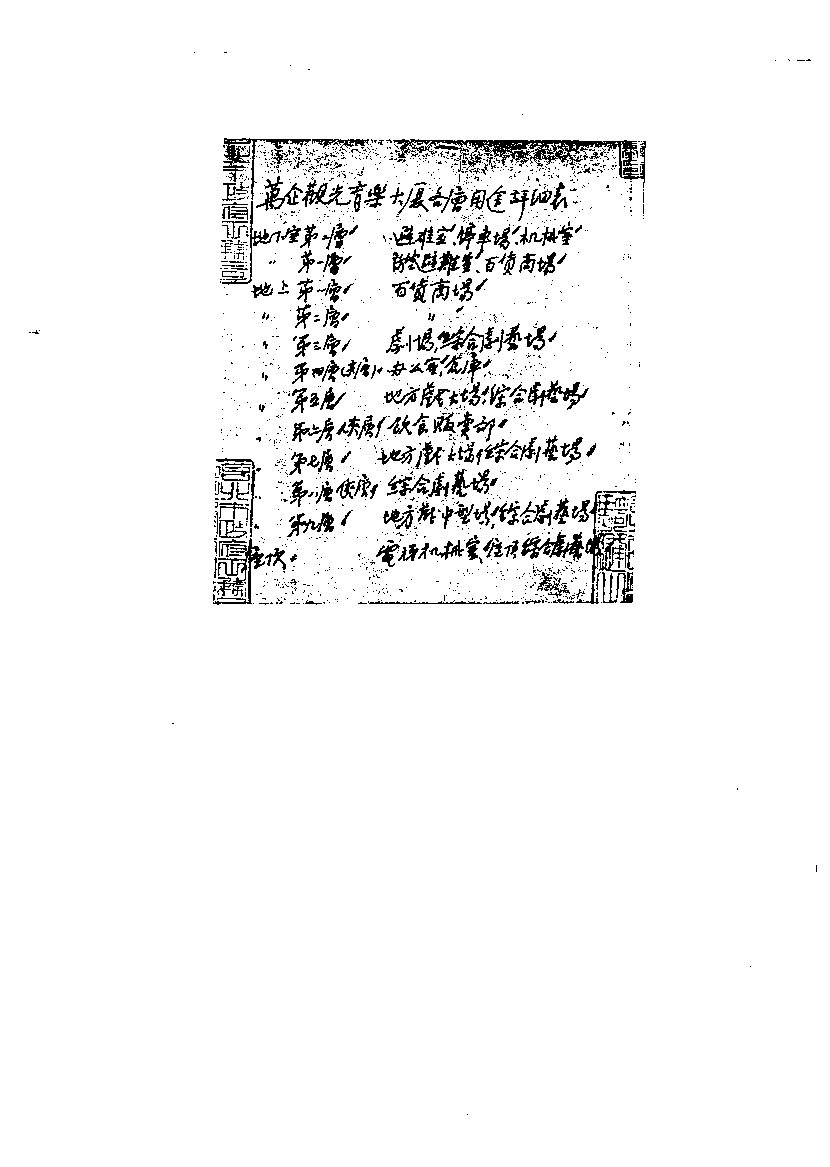 萬企觀光育樂大厦各層用途詳細表
地下室第二層 避难室、停車場、机械室
〃 第一層 防空避難室、百貨商場
地上第一層 百貨商場
〃 第二層 〃
〃 第三層 劇場、綜合劇藝場
〃 第四層(夾層) 办公室、倉庫
〃 第五層 地方戲大場、綜合劇藝場
〃 第六層(夾層) 飲食販賣部
〃 第七層 地方戲大場、綜合劇藝場
〃 第八層(夾層) 綜合劇藝場
〃 第九層 地方戲中型場、綜合劇藝場
屋頂 電梯机械室、屋頂綜合劇藝場